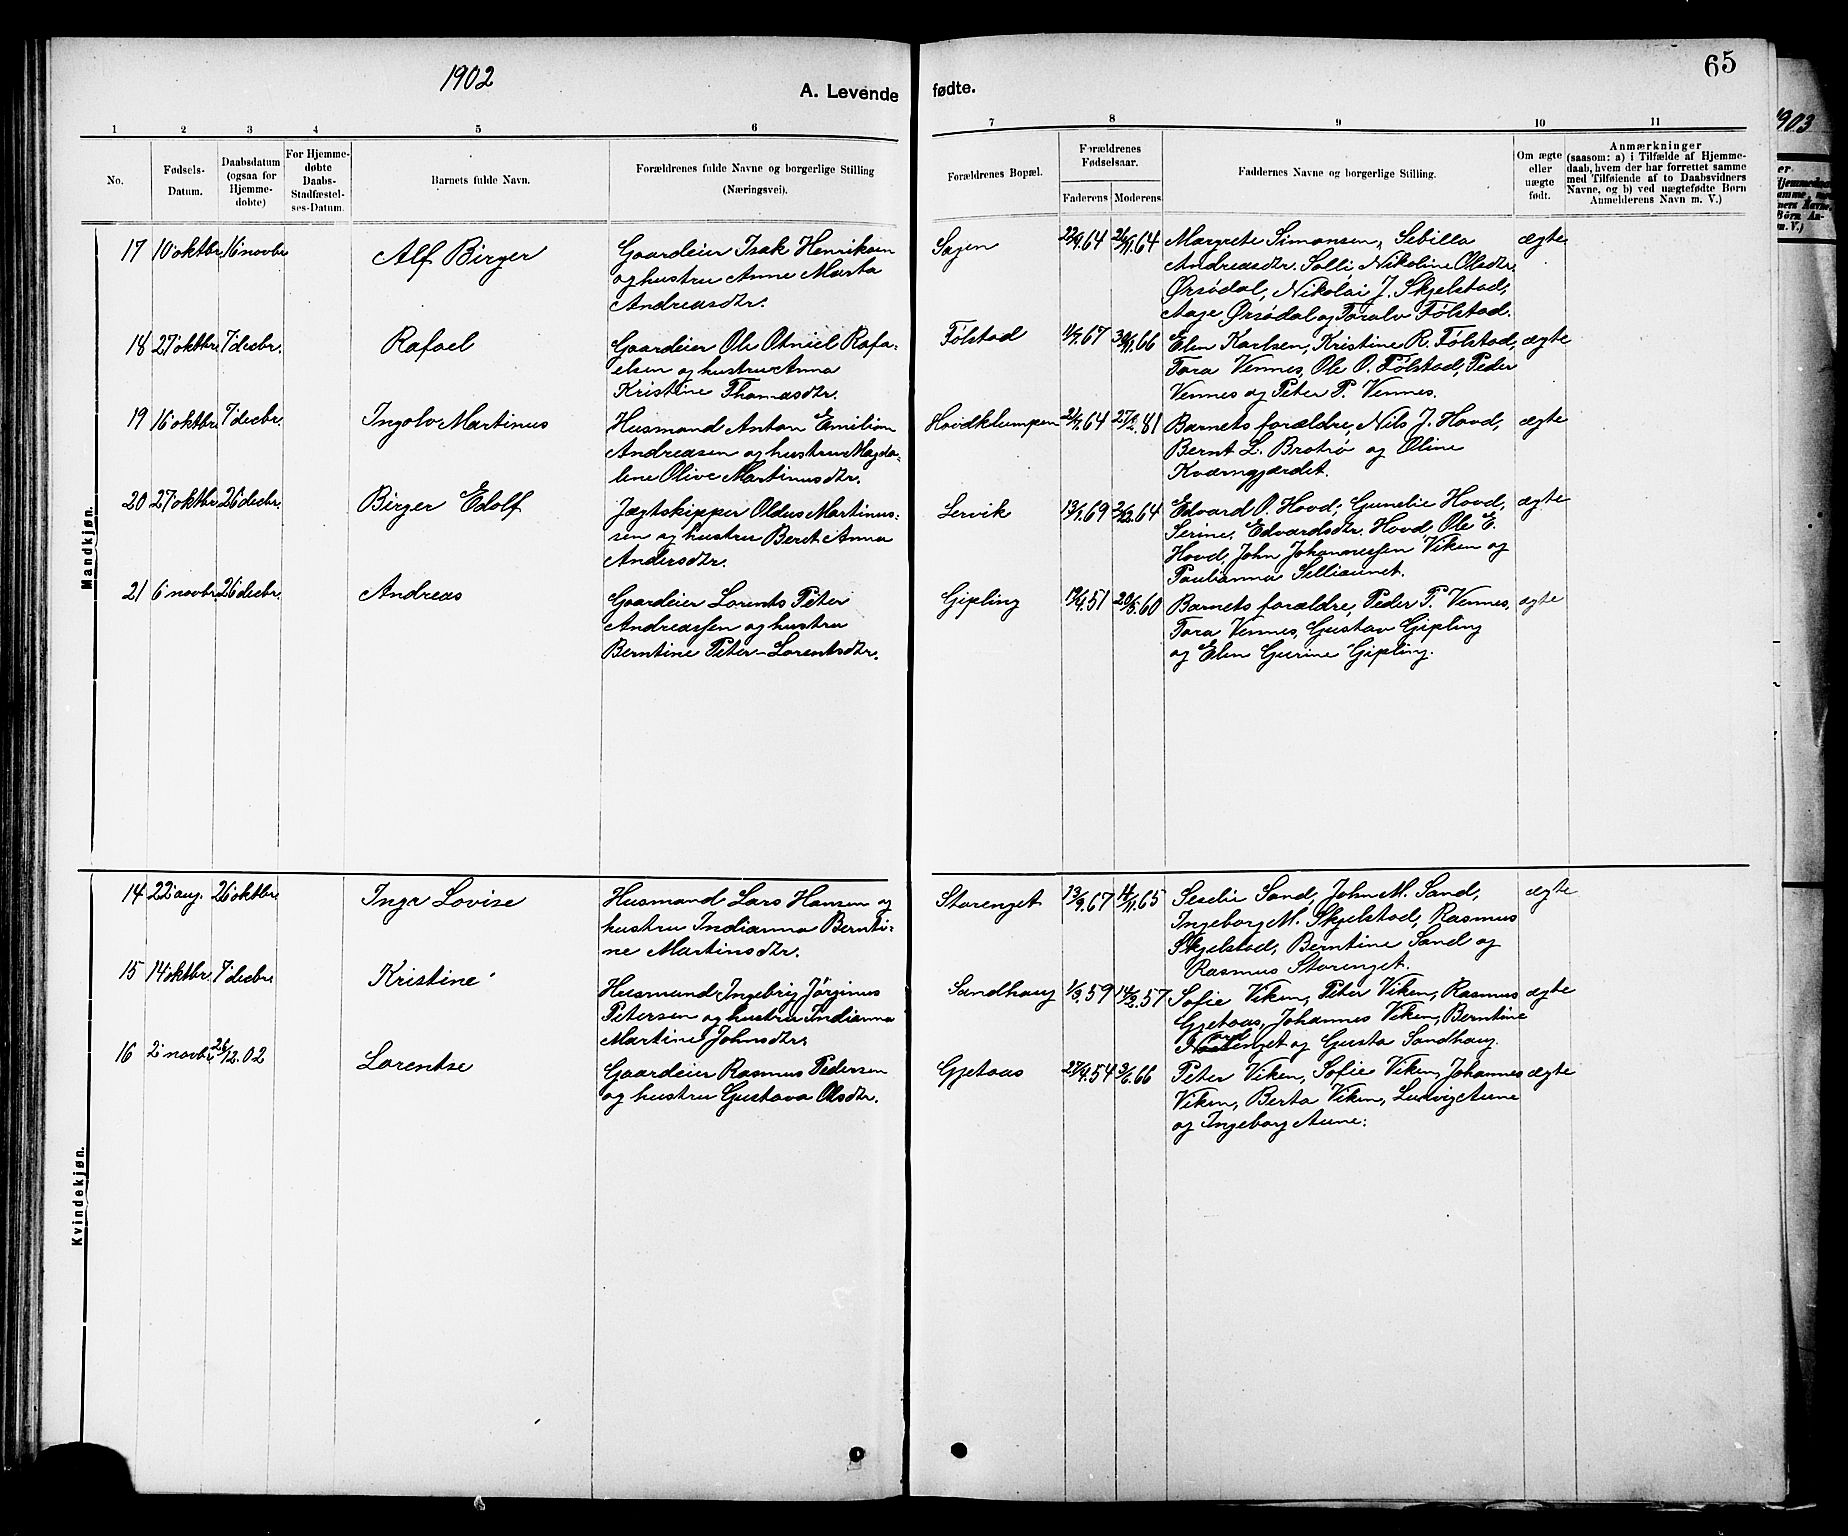 1902
65
A. Levende fødte.
1 2 3 4 5 6 7 8 9 10 11
No.
Fødsels-
Datum.
Daabsdatum
(ogsaa for
Hjemme-
døbte)
For Hjemme-
døbte
Daabs-
Stadfæstel-
ses-Datum.
Barnets fulde Navn.
Forældrenes fulde Navne og borgerlige Stilling
(Næringsvei).
Forældrenes Bopæl.
Forældrenes
Fødselsaar.
Faderens Moderens
Faddernes Navne og borgerlige Stilling.
Om ægte
eller
uægte
født.
Anmærkninger
(saasom: a) i Tilfælde af Hjemme-
daab, hvem der har forrettet samme
med Tilføiende af to Daabsvidners
Navne, og b) ved uægtefødte Børn
Anmelderens Navn m. V.)
Mandkjøn.
17 10 oktbr. 16 novbr Alf Birger
Gaardeier Isak Henriksen
og hustru Anne Marta
Andreasdtr.
Sagen 22/9.64 26/11.64
Margrete Simonsen, Sibilla
Andreasdtr. Solli, Nikoline Olsdtr.
Ørsødal, Nikolai J. Skjelstad,
Aage Ørsødal og Toralv Følstad.
ægte
18 27 oktbr. 7 decbr. Rafael
Gaardeier Ole Otniel Rafa-
elsen og hustru Anna
Kristine Thomasdtr.
Følstad 11/7.67 30/11.66
Elen Karlsen, Kristine R. Følstad,
Tora Vennes, Ole O. Følstad, Peder
Vennes og Peter P. Vennes.
ægte
19 16 oktbr. 7 decbr. Ingolv Martinus
Husmand Anton Emilian
Andreasen og hustru Magda-
lene Olive Martinusdtr.
Hovdklumpen 21/7.64 27/2.81
Barnets forældre, Nils J. Hovd,
Bernt L. Brotrø og Oline
Kværngjærdet.
ægte
20 27 oktbr. 26 decbr. Birger Edolf
Jægtskipper Oldus Martinus-
sen og hustru Beret Anna
Andersdtr.
Lervik 13/7.69 64
Edvard O. Hovd, Gunelie Hovd,
Serine Edvardsdtr. Hovd, Ole E.
Hovd, John Johannessen Viken og
Paulianna Selliaunet.
ægte
21 6 novbr. 26 decbr. Andreas
Gaardeier Lorents Peter
Andreassen og hustru
Berntine Peter-Lorentsdtr.
Gipling 51 20/5.60
Barnets forældre, Peder P. Vennes,
Tora Vennes, Gustav Gipling
og Elen Gurine Gipling.
ægte
Kvindekjøn.
14 22 aug. 26 oktbr. Inga Lovise
Husmand Lars Hansen og
hustru Indianna Bernti-
ne Martinsdtr.
Storenget 13/9.67 14/11.65
Seselie Sand, John M. Sand,
Ingeborg M. Skjelstad, Rasmus
Skjelstad, Berntine Sand og
Rasmus Storenget.
ægte
15 14 oktbr. 7 decbr Kristine
Husmand Ingebrig Jørginus
Petersen og hustru Indianna
Martine Johnsdtr.
Sandhaug 1/3.59 14/2.57
Sofie Viken, Peter Viken, Rasmus
Gjetaas, Johannes Viken, Berntine
og Gusta Sandhaug.
ægte
16 2 novbr. 26/12.02 Lorentse
Gaardeier Rasmus Pedersen
og hustru Gustava Olsdtr.
Gjetaas 27/9.54 3/6.66
Peter Viken, Sofie Viken, Johannes
Viken, Berta Viken, Ludvig Aune
og Ingeborg Aune.
ægte